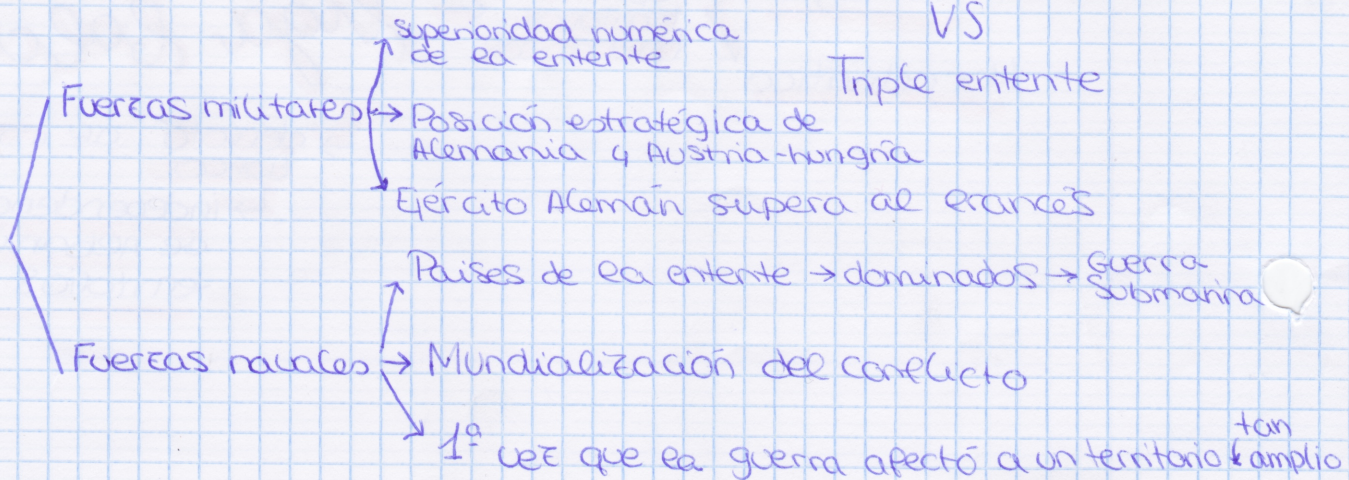 VS
Triple entente
Fuerzas militares
→ superioridad numérica
de la entente
→ Posición estratégica de
Alemania y Austria-hungría
→ Ejército Alemán supera al francés
Fuerzas navales
→ Paises de la entente → dominados → Guerra
Submarina
→ Mundialización del conflicto
→ 1ª vez que la guerra afectó a un territorio tan amplio